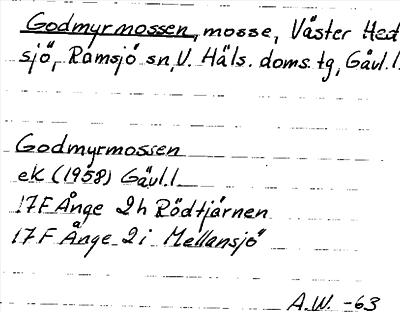 Godmyrmossen, mosse, Väster Hed
sjö, Ramsjö sn, V. Häls. doms. tg, Gävl. l.
Godmyrmossen
ek (1958) Gävl. l
17F Ånge 2h Rödtjärnen
17F Ånge 2i Mellansjö
A.W. -63